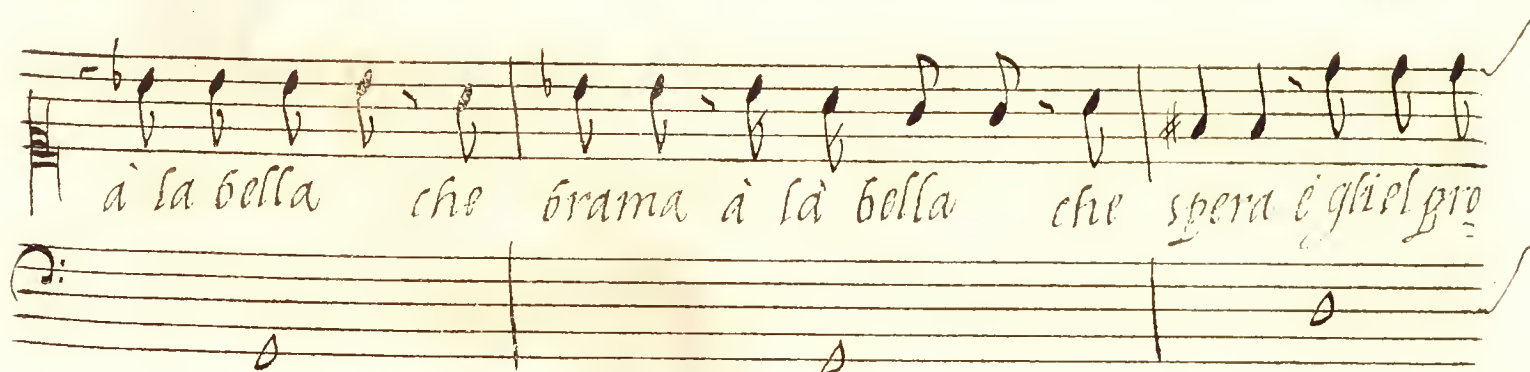 à la bella che brama à là bella che spera é gliel pro